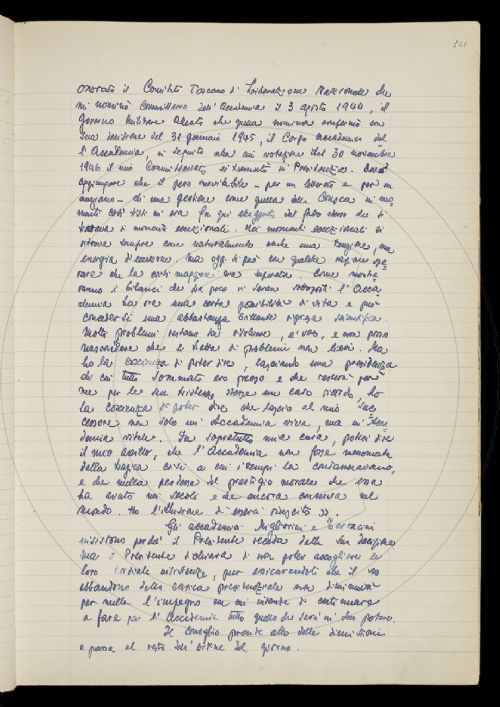 111
onorato il Comitato Toscano di Liberazione Nazionale che
mi nominò Commissario dell'Accademia il 3 agosto 1944, il
Governo Militare Alleato che quella nomina confermò con
sua decisione del 31 gennaio 1945, il Corpo accademico del
l'Accademia in seguito alla cui votazione del 30 novembre
1946 il mio Commissariato si tramutò in Presidenza.
aggiungere che il peso inevitabile - per un letterato e per un
anziano - di una gestione come quella della Crusca in mo
menti così tristi mi era fin qui alleggerito dal fatto stesso che si
trattava di momenti eccezionali. Nei momenti eccezionali si
ritrova sempre come naturalmente anche una tensione, una
energia d'eccezione. Ma oggi si può con qualche ragione spe
rare che la crisi maggiore sia superata. Come mostre
ranno i bilanci che da poco vi saranno sottoposti l'Acca
demia ha ora una certa possibilità di vita e può
concedersi una abbastanza brillante ripresa scientifica.
Molti problemi restano da risolvere, è vero, e non posso
nascondere che si tratta di problemi non lievi. Ma
ho la coscienza di poter dire, lasciando una presidenza
di cui tutto sommato ero preso e che resterà per
me per le sue tristezze stesse un caro ricordo, ho
la coscienza di poter dire che lascio al mio suc
cessore non solo un'Accademia viva, ma un'Acca
demia vitale. Fu soprattutto mia cura, potrei dire
il mio assillo, che l'Accademia non fosse menomata
dalla tragica crisi a cui i tempi la condannavano,
e che nulla perdesse del prestigio morale che essa
ha avuto nei secoli e che ancora conserva nel
mondo. Ho l'illusione di esserci riuscito ».
Gli accademici Migliorini e Terracini
insistono perché il Presidente receda dalla sua decisione
ma il Presidente dichiara di non poter accogliere la
loro cordiale insistenza, pur assicurandoli che il suo
abbandono della carica presidenziale non diminuirà
per nulla l'impegno con cui intende di continuare
a fare per l'Accademia tutto quello che sarà in suo potere.
Il Consiglio prende atto delle dimissioni
e passa al resto dell'ordine del giorno.